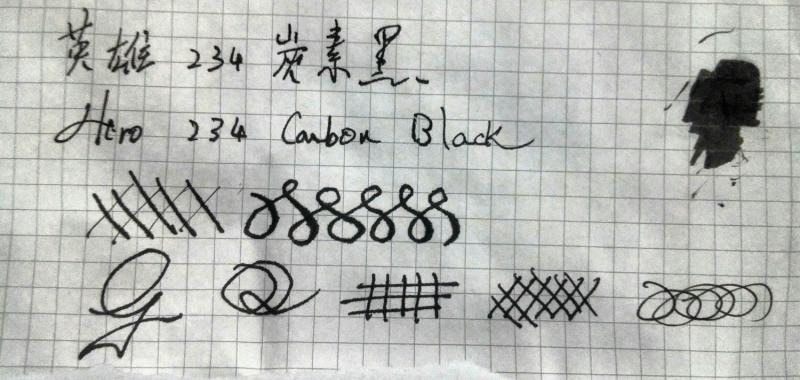 英雄 234 炭素黑
Hero 234 Carbon Black
G Q